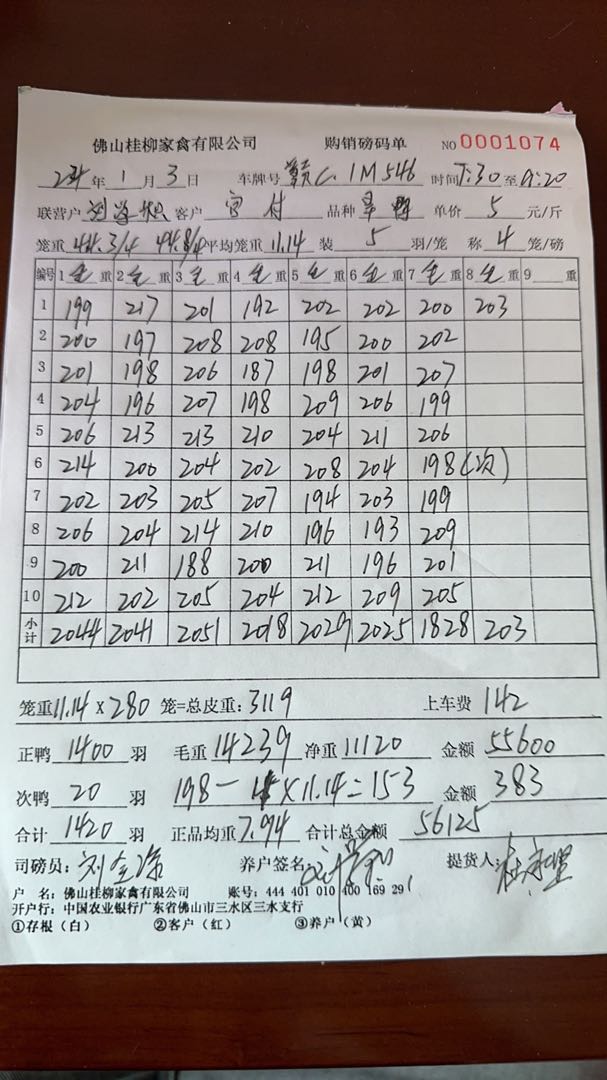 佛山桂柳家禽有限公司 购销磅码单 NO 0001074
24年 1月 3日 车牌号 C 1M546 时间 7:30 至 9:20
联营户 客户 宫付 品种 单价 5 元/斤
笼重 44.3/4 44.8/4 平均笼重 11.14 装 5 羽/笼 称 4 笼/磅
编号 1 毛重 2 毛重 3 毛重 4 毛重 5 毛重 6 毛重 7 毛重 8 毛重 9 重
1 199 217 201 192 202 202 200 203
2 200 197 208 208 195 200 202
3 201 198 206 187 198 201 207
4 204 196 207 198 209 206 199
5 206 213 213 210 204 211 206
6 214 200 204 202 208 204 198(次)
7 202 203 205 207 194 203 199
8 206 204 214 210 196 193 209
9 200 211 188 200 211 196 201
10 212 202 205 204 212 209 205
小计 2044 2041 2051 2018 2029 2025 1828 203
笼重 11.14 X 280 笼=总皮重: 3119 上车费 142
正鸭 1400 羽 毛重 14239 净重 11120 金额 55600
次鸭 20 羽 198 - 4 X 11.14 = 153 金额 383
合计 1420 羽 正品均重 7.94 合计总金额 56125
司磅员: 养户签名: 提货人:
户 名: 佛山桂柳家禽有限公司 账号: 444 401 010 400 169 291
开户行: 中国农业银行广东省佛山市三水区三水支行
①存根(白) ②客户(红) ③养户(黄)